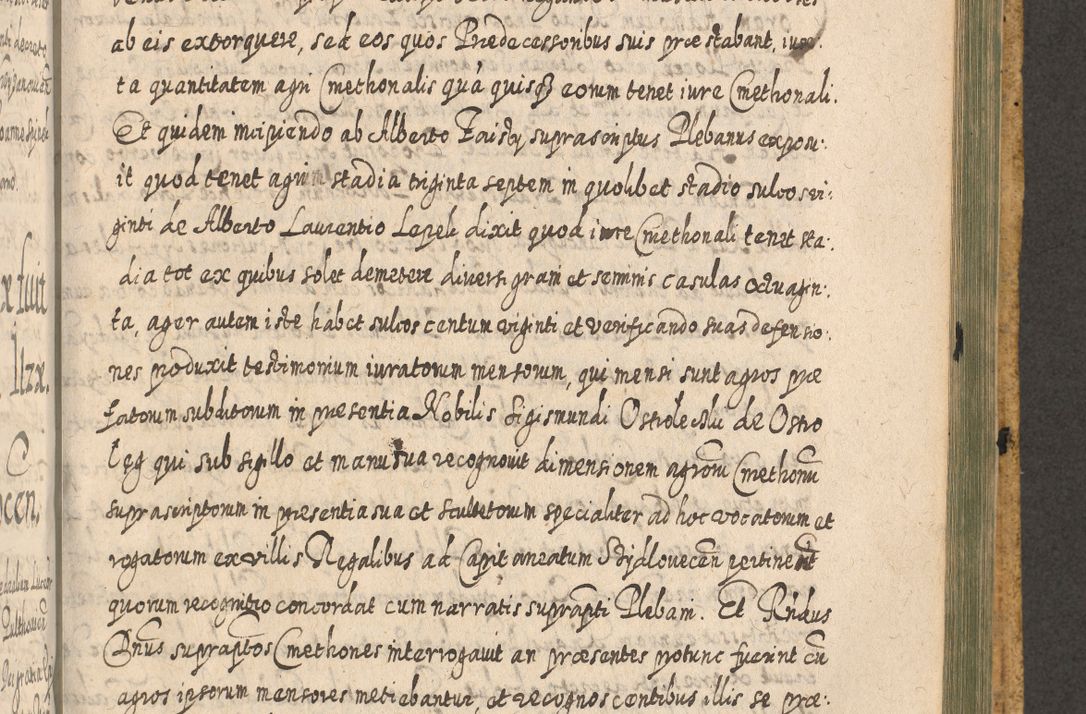 ab eis extorquere, sed eos quos Prædecessoribus suis præstabant, iux:
ta quantitatem agri Cmethonalis quá quisq3 eorum tenet iure Cmethonali.
Et quidem incipiendo ab Alberto suprascriptus Plebanus exposu:
it quod tenet agrum stadia triginta septem in quolibet stadio sulcos vi:
ginti de Alberto Laurentio Lepek dixit quod iure Cmethonali tenet sta:
dia tot ex quibus solet demetere diversi grani et seminis casulas octuagin:
ta, ager autem iste habet sulcos centum viginti et verificando suas defensio:
nes produxit testimonium iuratorum mensorum, qui mensi sunt agros præ
fatorum subditorum in præsentia Nobilis Sigismundi de Ostro
łęg qui sub sigillo et manu sua recognovit dimensionem agrorū Cmethonū
suprascriptorum in præsentia sua et scultetorum specialiter ad hoc vocatorum et
rogatorum ex villis Regalibus ad Capitaneatum Stydlovecen̄ pertinent
quorum recognitio concordat cum narratis suprap̄ti Plebani. Et Rn̄dus
Dn̄us suprap̄tos Cmethones interrogavit an præsentes protunc fuerint cū
agros ipsorum mensores metiebantur, et recognoscentibus illis se præ: